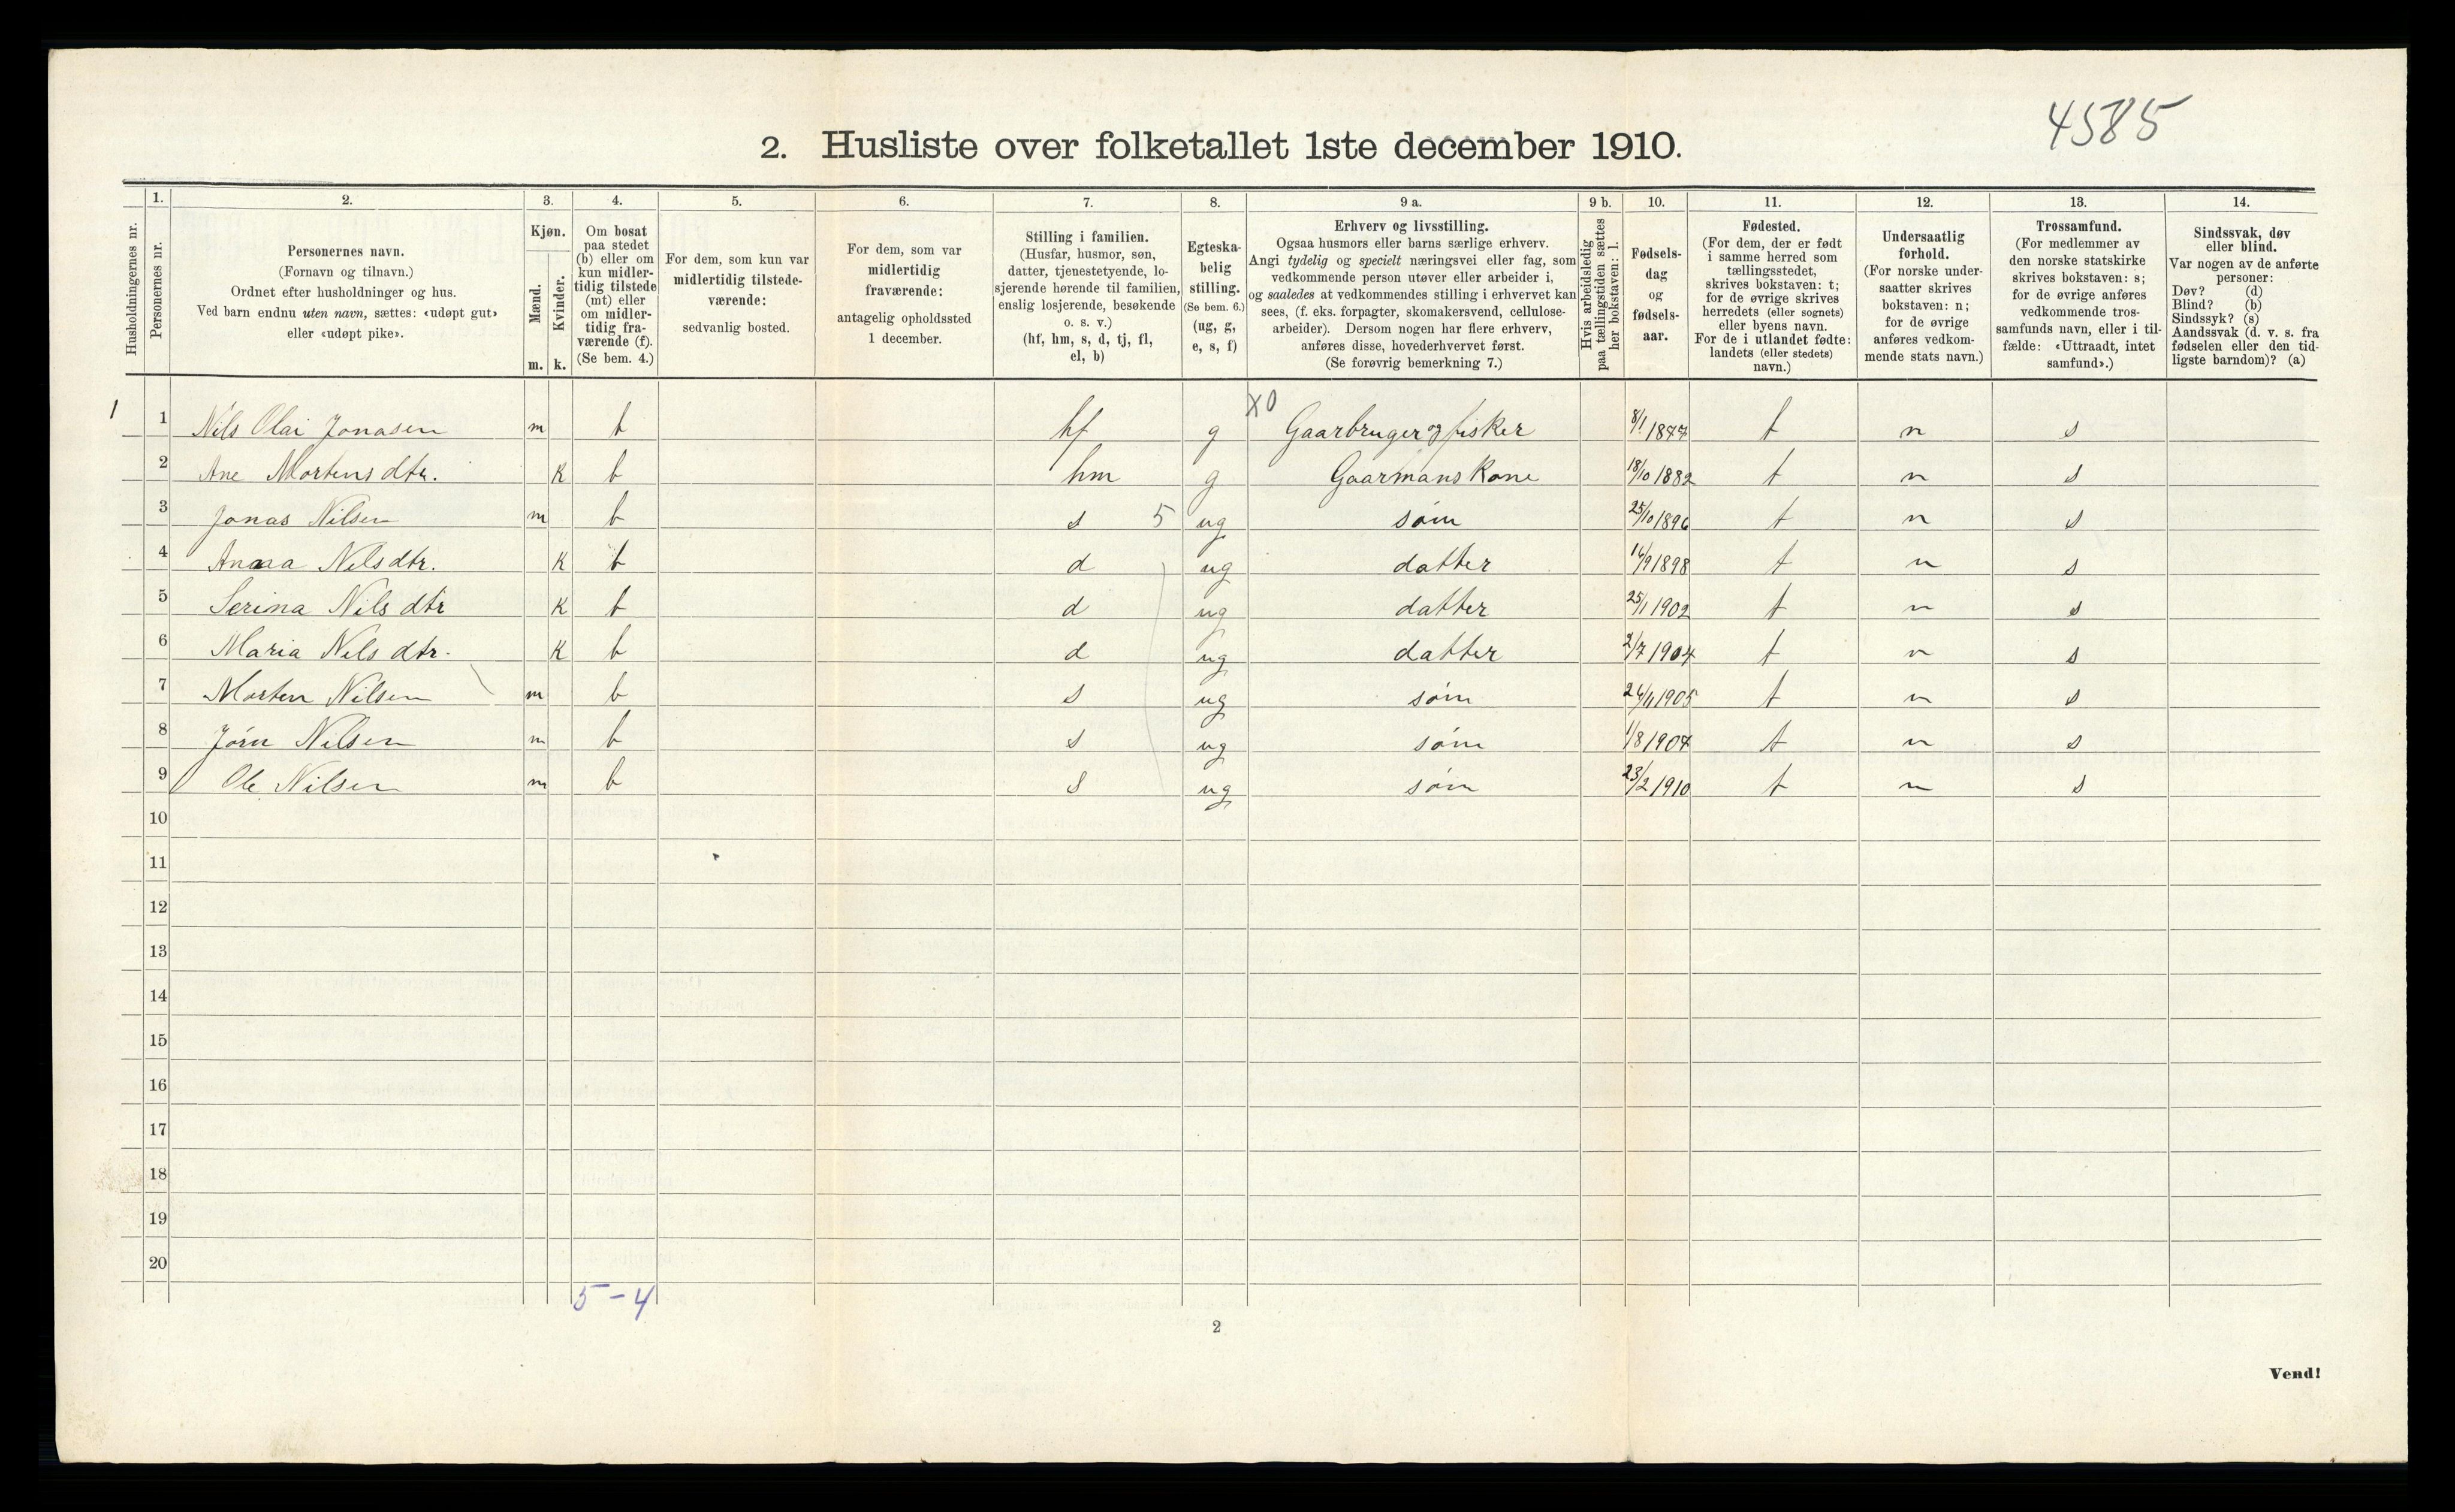 4585
2. Husliste over folketallet 1ste december 1910.
Husholdningernes nr.
1.
Personernes nr.
2.
Personernes navn.
(Fornavn og tilnavn.)
Ordnet efter husholdninger og hus.
Ved barn endnu uten navn, sættes: «udøpt gut»
eller «udøpt pike».
3.
Kjøn.
Mænd.
Kvinder.
m. k.
4.
Om bosat
paa stedet
(b) eller om
kun midler-
tidig tilstede
(mt) eller
om midler-
tidig fra-
værende (f).
(Se bem. 4.)
5.
For dem, som kun var
midlertidig tilstede-
værende:
sedvanlig bosted.
6.
For dem, som var
midlertidig
fraværende:
antagelig opholdssted
1 december.
7.
Stilling i familien.
(Husfar, husmor, søn,
datter, tjenestetyende, lo-
sjerende hørende til familien,
enslig losjerende, besøkende
o. s. v.)
(hf, hm, s, d, tj, fl,
el, b)
8.
Egteska-
belig
stilling.
(Se bem. 6.)
(ug, g,
e, s, f)
9 a.
Erhverv og livsstilling.
Ogsaa husmors eller barns særlige erhverv.
Angi tydelig og specielt næringsvei eller fag, som
vedkommende person utøver eller arbeider i,
og saaledes at vedkommendes stilling i erhvervet kan
sees, (f. eks. forpagter, skomakersvend, cellulose-
arbeider). Dersom nogen har flere erhverv,
anføres disse, hovederhvervet først.
(Se forøvrig bemerkning 7.)
9 b.
Hvis arbeidsledig
paa tællingstiden sættes
her bokstaven: l.
10.
Fødsels-
dag
og
fødsels-
aar.
11.
Fødested.
(For dem, der er født
i samme herred som
tællingsstedet,
skrives bokstaven: t;
for de øvrige skrives
herredets (eller sognets)
eller byens navn.
For de i utlandet fødte:
landets (eller stedets)
navn.)
12.
Undersaatlig
forhold.
(For norske under-
saatter skrives
bokstaven: n;
for de øvrige
anføres vedkom-
mende stats navn.)
13.
Trossamfund.
(For medlemmer av
den norske statskirke
skrives bokstaven: s;
for de øvrige anføres
vedkommende tros-
samfunds navn, eller i til-
fælde: «Uttraadt, intet
samfund».)
14.
Sindssvak, døv
eller blind.
Var nogen av de anførte
personer:
Døv? (d)
Blind? (b)
Sindssyk? (s)
Aandssvak (d. v. s. fra
fødselen eller den tid-
ligste barndom)? (a)
X0
1 1 Nils Olai Jonasen m b hf g Gaarbruger og fisker 8/1 1877 t n s
2 Ane Mortensdtr. K b hm g Gaarmans Kone 18/10 1882 t n s
3 Jonas Nilsen m b s 5 ug søm 25/10 1896 t n s
4 Nilsdtr. K b d ug datter 1898 t n s
5 Serina Nilsdtr K b d ug datter 25/1 1902 t n s
6 Maria Nilsdtr. K b d ug datter 2/7 1904 t n s
7 Morten Nilsen m b s ug søm 1905 t n s
8 Jørn Nilsen m b s ug søm 1/8 1907 t n s
9 Ole Nilsen m b s ug søm 23/2 1910 t n s
10
11
12
13
14
15
16
17
18
19
20
5 - 4
2
Vend!